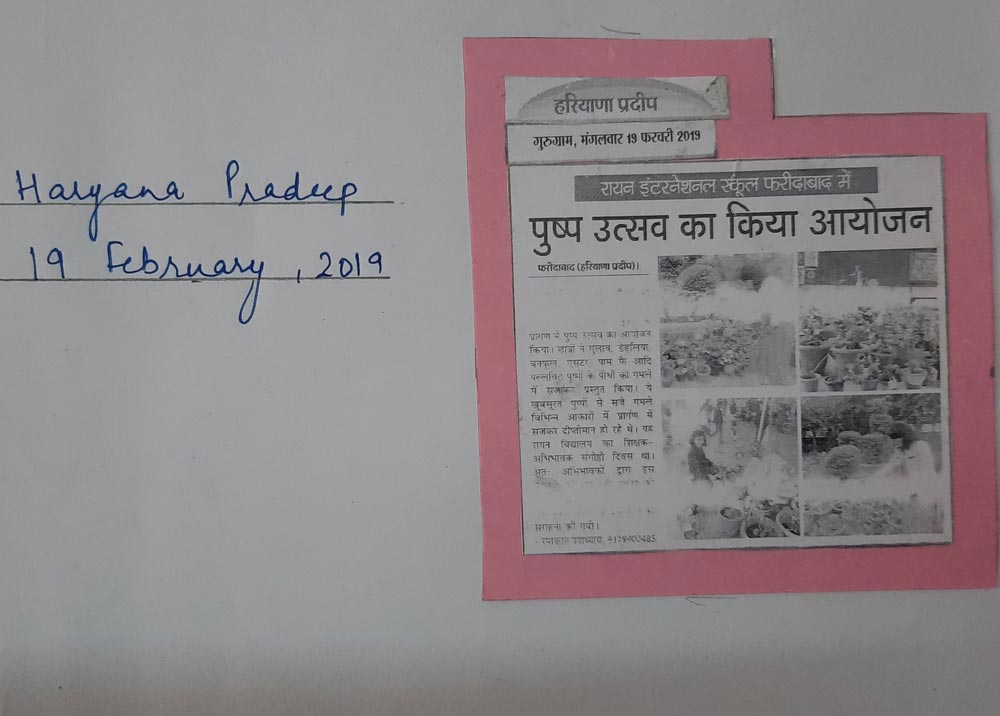 Haryana Pradeep
19 February, 2019
हरियाणा प्रदीप
गुरुग्राम, मंगलवार 19 फरवरी 2019
रायन इंटरनेशनल स्कूल फरीदाबाद में
पुष्प उत्सव का किया आयोजन
फरीदाबाद (हरियाणा प्रदीप)।
प्रागंण में पुष्प उत्सव का आयोजन
किया। छात्रों ने गुलाब, डेहलिया,
एसटर, पाम के आदि
पुष्पों के पौधों को गमले
में सजाकर प्रस्तुत किया। ये
खूबसूरत पुष्पों से सजे गमले
विभिन्न आकारों में प्रागंण में
सजकर दीप्तीमान हो रहे थे। यह
रायन विद्यालय का शिक्षक-
अभिभावक संगोष्ठी दिवस था।
अतः अभिभावकों द्वारा इस
सराहना की गयी।